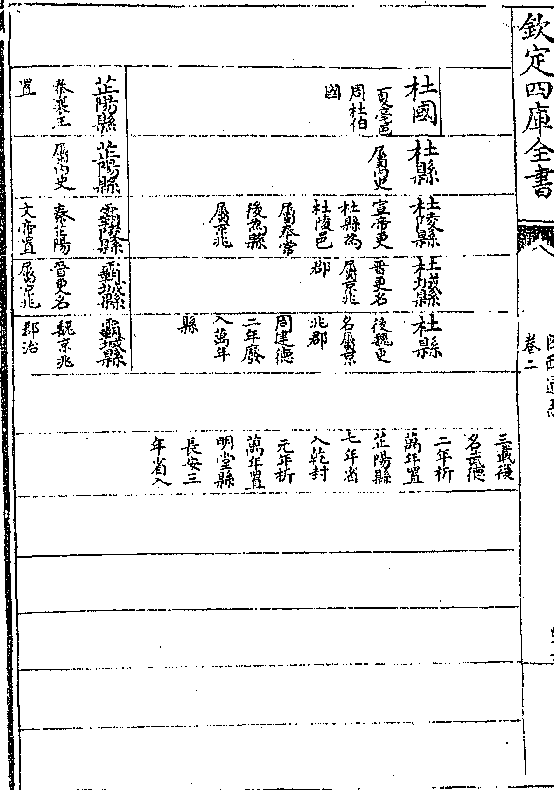 欽定四庫全書
卷二
杜國
夏啻邑
周杜伯
國
杜縣
屬內史
杜陵縣
宣帝更
杜縣為
杜陵邑
屬奉常
後為縣
屬京兆
杜城縣
晉更名
屬京兆
郡
杜縣
後魏更
名屬京
兆郡
周建德
二年廢
入萬年
縣
三載復
名武德
二年析
萬年置
芷陽縣
七年省
入乾封
元年析
萬年置
明堂縣
長安三
年省入
芷陽縣
秦襄王
置
芷陽縣
屬內史
霸陵縣
秦芷陽
文帝置
霸城縣
晉更名
屬京兆
霸城縣
魏京兆
郡治